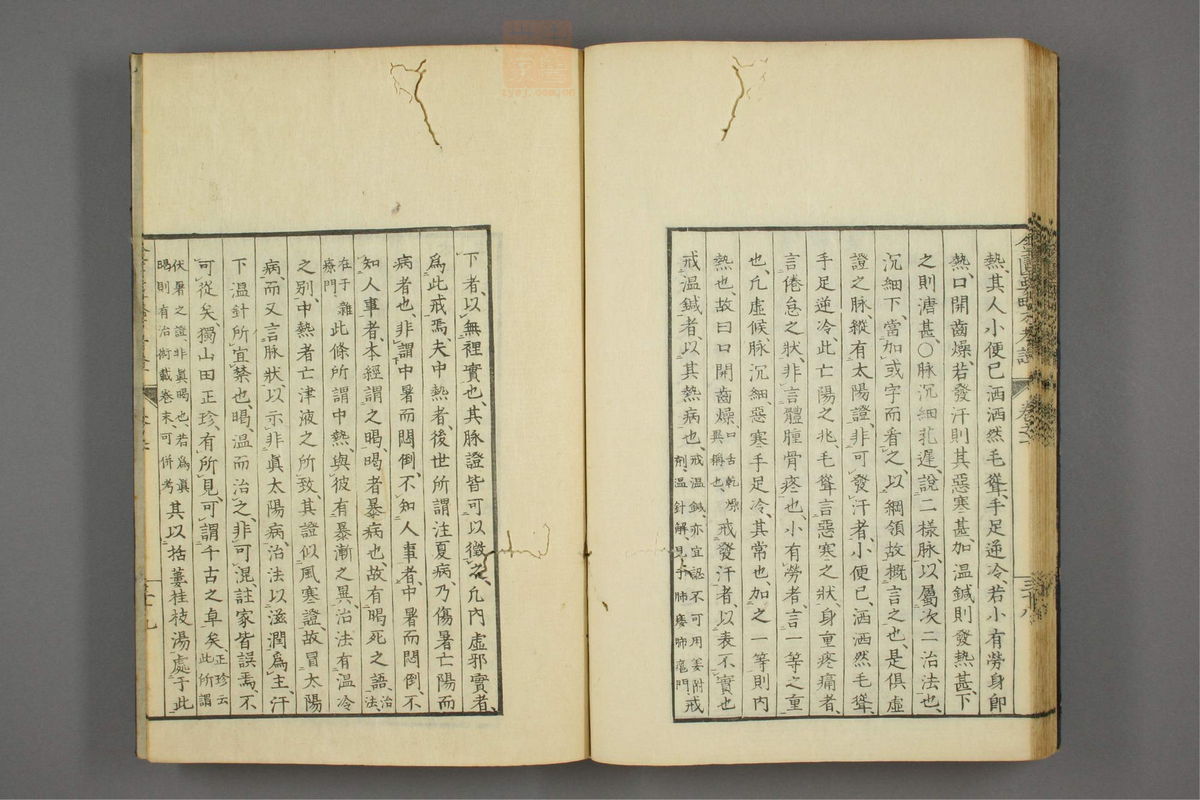 熱、其人小便已洒洒然毛聳、手足逆冷、若小有勞身卽
熱、口開齒燥、若發汗則其惡寒甚、加溫鍼則發熱甚、下
之則溏甚、〇脉沉細芤遲、說二樣脉、以屬次二治法也、
沉細下、當加或字而看之、以綱領故概言之也、是俱虛
證之脉、縱有太陽證、非可發汗者、小便已、洒洒然毛聳、
手足逆冷、此亡陽之兆、毛聳言惡寒之狀、身重疼痛者、
言倦怠之狀、非言體腫骨疼也、小有勞者、言一等之重
也、凡虛候、脉沉細、惡寒手足冷、其常也、加之一等則內
熱也、故曰口開齒燥、口舌乾燥異稱也、戒發汗者、以表不實也
戒溫鍼者、以其熱病也、戒溫鍼、亦宜認不可用姜附戒劑、溫針解、見于肺痿肺癰門
卷之一
三十八
下者、以無裡實也、其脉證皆可以徵之、凡內虛邪實者、
爲此戒焉、夫中熱者、後世所謂注夏病、乃傷暑亡陽而
病者也、非謂中暑而悶倒、不知人事者、中暑而悶倒、不
知人事者、本經謂之暍、暍者暴病也、故有暍死之語、治法、
在于雜療門此條所謂中熱、與彼有暴漸之異、治法有溫冷
之別、中熱者亡津液之所致、其證似風寒證、故冒太陽
病、而又言脉狀、以示非眞太陽病、治法以滋潤爲主、汗
下溫針所宜禁也、暍、溫而治之、非可混、註家皆誤焉、不
可從矣、獨山田正珍、有所見、可謂千古之卓矣、正珍云此所謂
伏暑之證、非眞暍也、若爲眞暍則有治術載卷末、可併考其以括蔞桂枝湯處于此